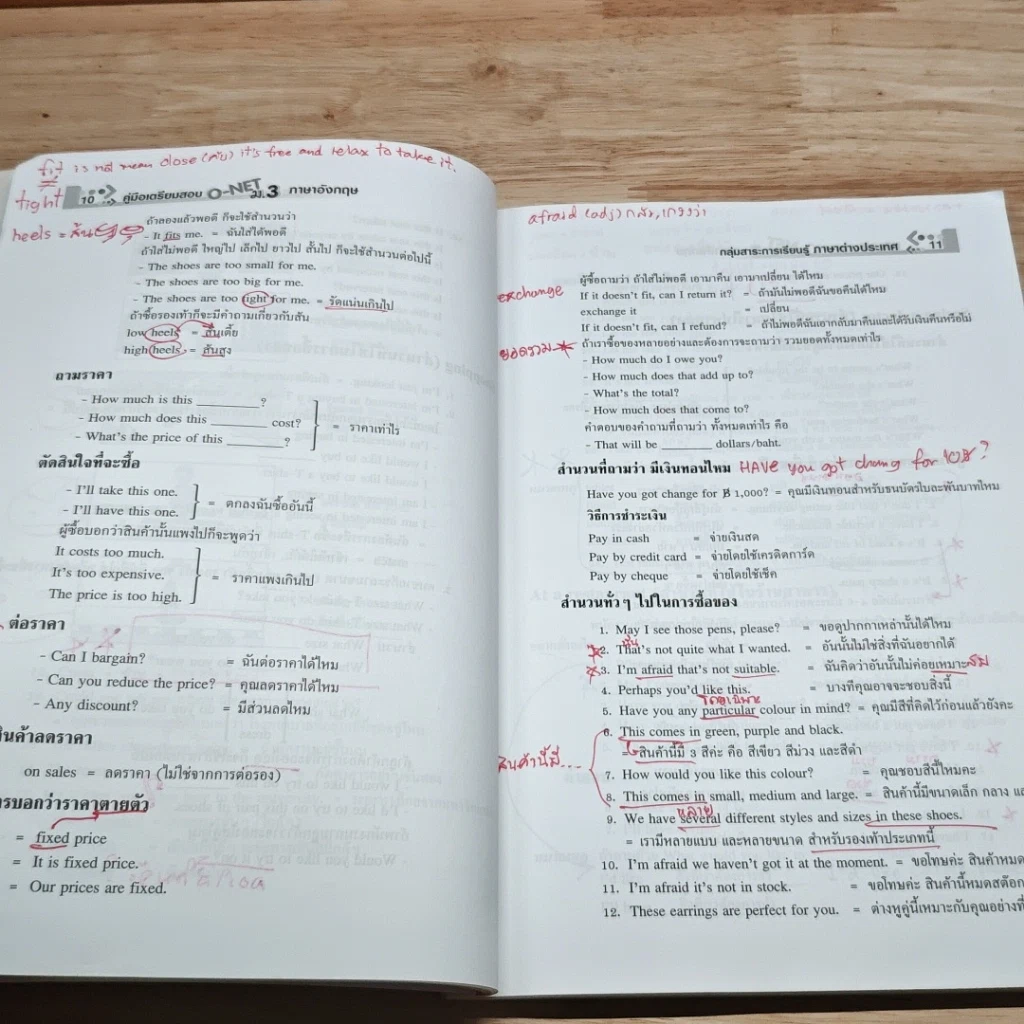 fit is not mean close (คับ) it's free and relax to take it.
tight
10 คู่มือเตรียมสอบ O-NET ม.3 ภาษาอังกฤษ
ถ้าลองแล้วพอดี ก็จะใช้สำนวนว่า
heels = ส้น
- It fits me. = ฉันใส่ได้พอดี
ถ้าใส่ไม่พอดี ใหญ่ไป เล็กไป ยาวไป สั้นไป ก็จะใช้สำนวนต่อไปนี้
- The shoes are too small for me.
- The shoes are too big for me.
- The shoes are too tight for me. = รัดแน่นเกินไป
ถ้าซื้อรองเท้าก็จะมีคำถามเกี่ยวกับส้น
low heels = ส้นเตี้ย
high heels = ส้นสูง
ถามราคา
- How much is this ________ ?
- How much does this ________ cost?
- What's the price of this ________ ?
= ราคาเท่าไร
ตัดสินใจที่จะซื้อ
- I'll take this one.
- I'll have this one.
= ตกลงฉันซื้ออันนี้
ผู้ซื้อบอกว่าสินค้านั้นแพงไปก็จะพูดว่า
It costs too much.
It's too expensive.
The price is too high.
= ราคาแพงเกินไป
ต่อราคา
- Can I bargain? = ฉันต่อราคาได้ไหม
- Can you reduce the price? = คุณลดราคาได้ไหม
- Any discount? = มีส่วนลดไหม
สินค้าลดราคา
on sales = ลดราคา (ไม่ใช่จากการต่อรอง)
รบอกว่าราคาตายตัว
= fixed price
= It is fixed price.
= Our prices are fixed.
afraid (adj) กลัว, เกรงว่า
กลุ่มสาระการเรียนรู้ ภาษาต่างประเทศ 11
ผู้ซื้อถามว่า ถ้าใส่ไม่พอดี เอามาคืน เอามาเปลี่ยน ได้ไหม
exchange
If it doesn't fit, can I return it? = ถ้ามันไม่พอดีฉันขอคืนได้ไหม
exchange it = เปลี่ยน
If it doesn't fit, can I refund? = ถ้าไม่พอดีฉันเอากลับมาคืนและได้รับเงินคืนหรือไม่
ยอดรวม
ถ้าเราซื้อของหลายอย่างและต้องการจะถามว่า รวมยอดทั้งหมดเท่าไร
- How much do I owe you?
- How much does that add up to?
- What's the total?
- How much does that come to?
คำตอบของคำถามที่ถามว่า ทั้งหมดเท่าไร คือ
- That will be ________ dollars/baht.
สำนวนที่ถามว่า มีเงินทอนไหม HAVE you got chang for
Have you got change for ฿ 1,000? = คุณมีเงินทอนสำหรับธนบัตรใบละพันบาทไหม
วิธีการชำระเงิน
Pay in cash = จ่ายเงินสด
Pay by credit card = จ่ายโดยใช้เครดิตการ์ด
Pay by cheque = จ่ายโดยใช้เช็ค
สำนวนทั่ว ๆ ไปในการซื้อของ
1. May I see those pens, please? = ขอดูปากกาเหล่านั้นได้ไหม
นั่น
2. That's not quite what I wanted. = อันนั้นไม่ใช่สิ่งที่ฉันอยากได้
3. I'm afraid that's not suitable. = ฉันคิดว่าอันนั้นไม่ค่อยเหมาะสม
4. Perhaps you'd like this. = บางทีคุณอาจจะชอบสิ่งนี้
โดยเฉพาะ
5. Have you any particular colour in mind? = คุณมีสีที่คิดไว้ก่อนแล้วยังคะ
6. This comes in green, purple and black.
= สินค้านี้มี 3 สีค่ะ คือ สีเขียว สีม่วง และสีดำ
สินค้านี้มี...
7. How would you like this colour? = คุณชอบสีนี้ไหมคะ
8. This comes in small, medium and large. = สินค้านี้มีขนาดเล็ก กลาง แล
หลาย
9. We have several different styles and sizes in these shoes.
= เรามีหลายแบบ และหลายขนาด สำหรับรองเท้าประเภทนี้
10. I'm afraid we haven't got it at the moment. = ขอโทษค่ะ สินค้าหมด
11. I'm afraid it's not in stock. = ขอโทษค่ะ สินค้านี้หมดสต๊อก
12. These earrings are perfect for you. = ต่างหูคู่นี้เหมาะกับคุณอย่างที่